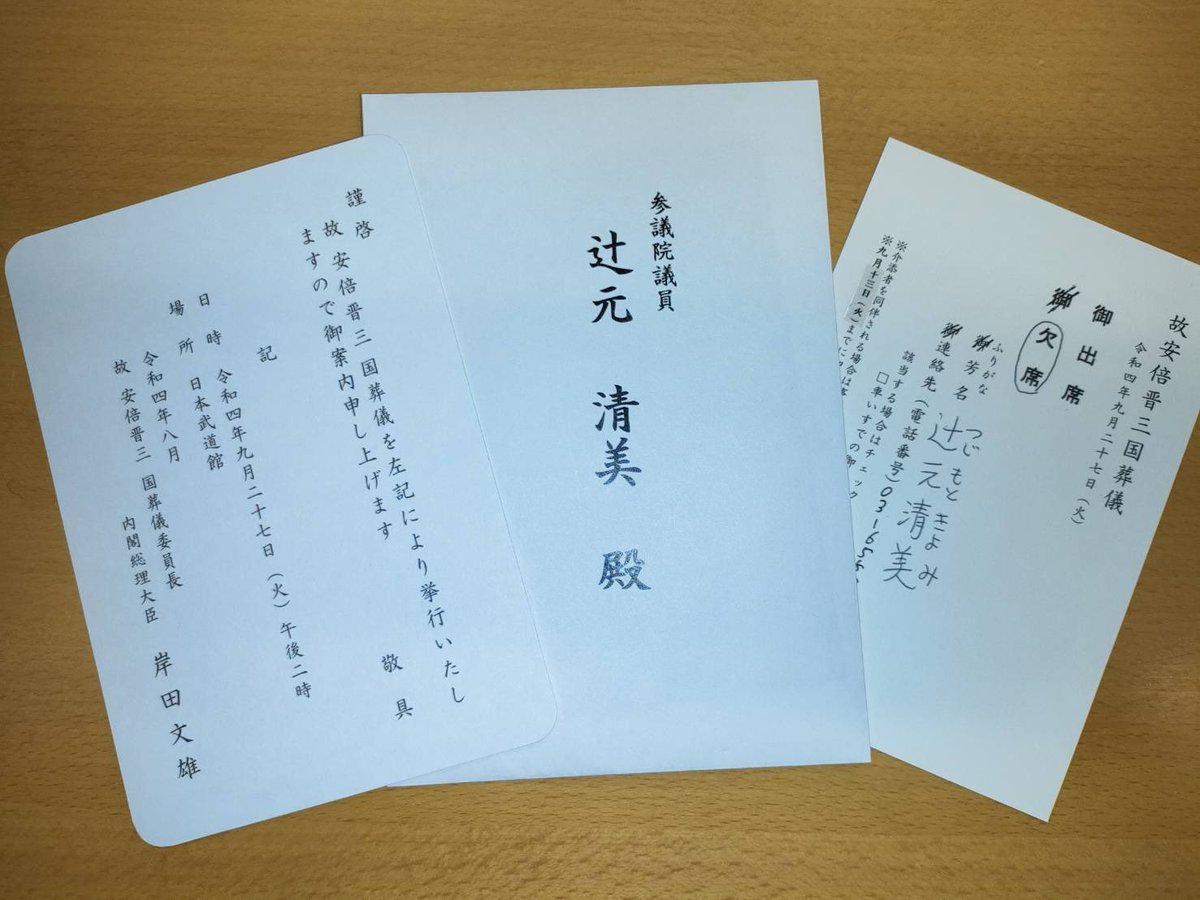 謹啓
故安倍晋三国葬儀を左記により挙行いたし
ますので御案内申し上げます
敬具
記
日時 令和四年九月二十七日（火）午後二時
場所 日本武道館
令和四年八月
故安倍晋三 国葬儀委員長
内閣総理大臣 岸田文雄
参議院議員
辻元 清美 殿
故安倍晋三国葬儀
令和四年九月二十七日（火）
御出席
御欠席
ふりがな つじもときよみ
御芳名 辻元清美
御連絡先（電話番号）03-165
該当する場合はチェック
□車いすでの御
※介添者を同伴される場合は
※九月十三日（火）までに